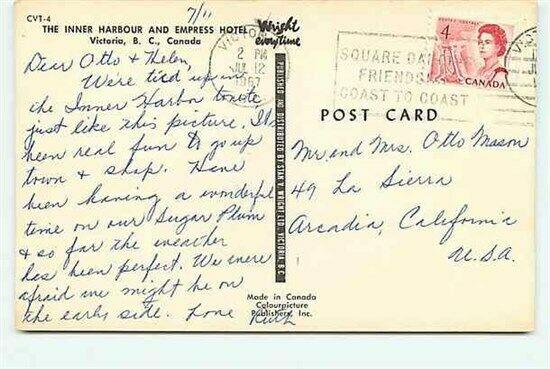 CVT-4
THE INNER HARBOUR AND EMPRESS HOTEL
Victoria, B. C., Canada
Wright
everytime
7/11
Dear Otto & Helen,
We're tied up in
the Inner Harbor tonite
just like this picture. It's
been real fun to go up
town & shop. Have
been having a wonderful
time on our Sugar Plum
& so far the weather
has been perfect. We were
afraid we might be on
the early side. Love Ruth
PUBLISHED AND DISTRIBUTED BY STAN V. WRIGHT LTD. VICTORIA, B. C.
Made in Canada
Colourpicture
Publishers, Inc.
2 PM
JUL 12
1967
SQUARE DAN
FRIENDSH
COAST TO COAST
4
CANADA
POST CARD
Mr. and Mrs. Otto Mason
49 La Sierra
Arcadia, California
U.S.A.